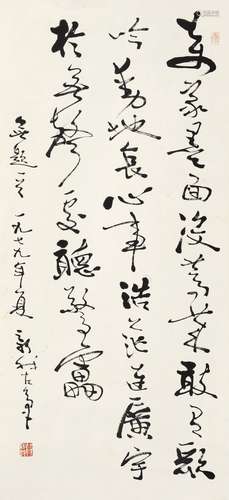 萬家墨面沒蒿萊敢有歌
吟動地哀心事浩茫連廣宇
於無聲處聽驚雷
無題一首 一九七九年夏 新我左筆